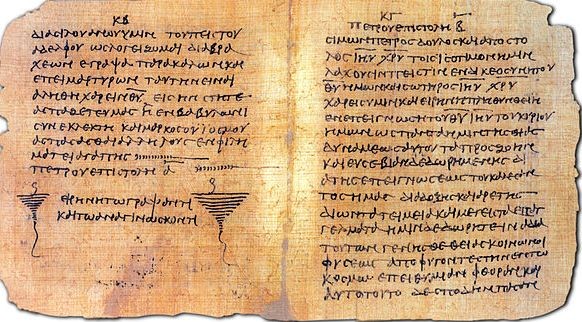 ΚΒ
διασιλουανουυμιν τουπιστου
αδελφουωσλογιζομαι διαβρα
χεωνεγραψαπαρακαλωνκαι
επειμαρτυρωνταυτηνειναι
αληθηχαρεινθυ εισηνστητε
ασπαζετευμας ηενβαβυλωνι
συνεκλεκτηκαιμαρκοσουυοσμου
ασπασασθεαλληλουσενφιλη
ματειαγαπης
πετρουεπιστολη α
ειρηνητωγραψαντι
καιτωαναγινωσκοντι
ΚΓ
πετρουεπιστολη β
σιμωνπετροςδουλοςκαιαποστο
λοςιηυχρυτοισισοτιμονημιν
λαχουσινπιστινενδικεοσυνητου
θυημωνκαισωτηροςιηυχρυ
χαρεισυμινκαιειρηνηπληθυνθειη
ενεπειγνωσιτουθυιηυτουκυριου
ημωνωσπανταημιντηςθειας
δυναμεωςαυτουταπροςζωην
καιευσεβιανδεδωρημενης δι
ατηςεπειγνωσεωςτουκαλεσαν
τοςημας διαδοξηςκαιαρετης
διωντατειμειακαιμεγισταεπαγ
γελματαημινδεδωρηταιιναδια
τουτωνγενησθεθειαςκοινωνοι
φυσεως αποφυγοντεςτηνεντω
κοσμωεπειθυμιανφθορανκαι
αυτοτουτο δεσπουδηνπασαν